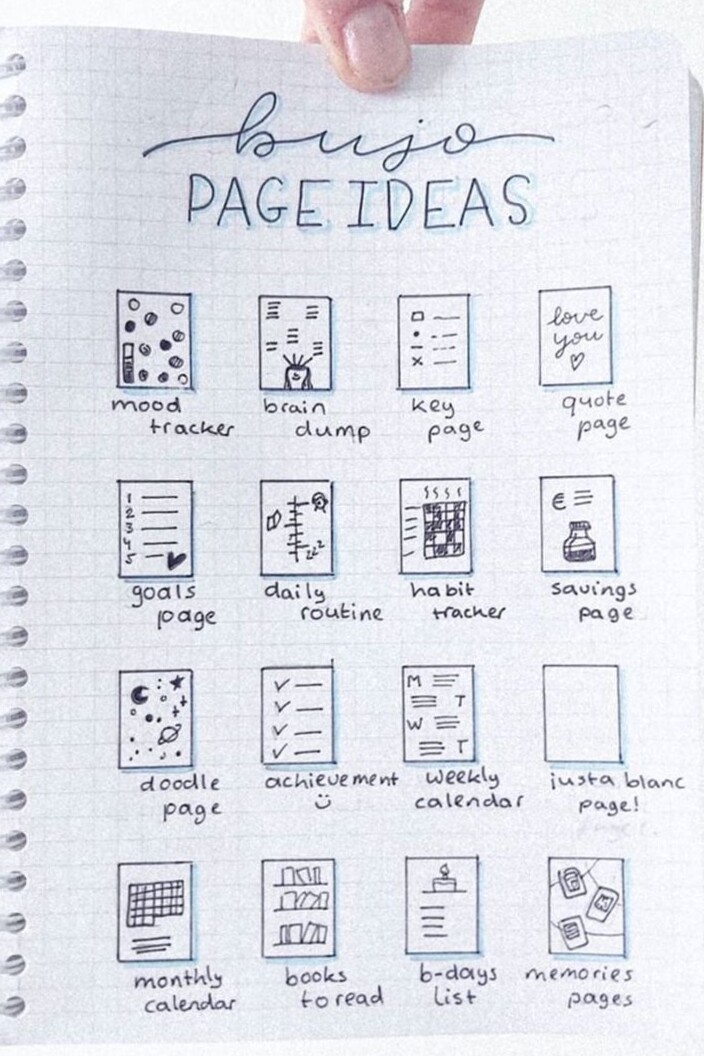 bujo
PAGE IDEAS
love
you
mood
tracker
brain
dump
key
page
quote
page
1
2
3
4
5
€
goals
page
daily
routine
habit
tracker
savings
page
zzz
M
T
W
T
doodle
page
achievement
weekly
calendar
just a blanc
page!
monthly
calendar
books
to read
b-days
list
memories
pages